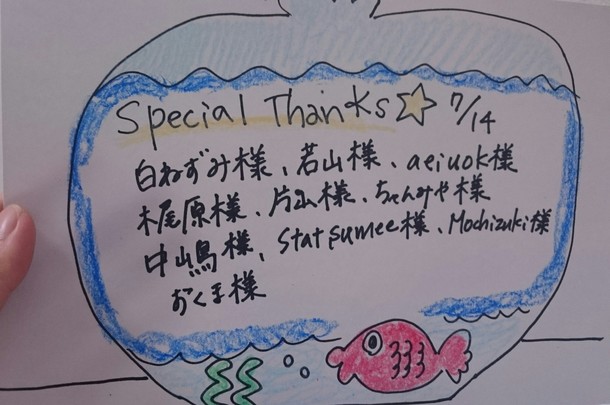 Special Thanks☆ 7/14
白ねずみ様、若山様、aeiuok様
梶原様、片山様、ちゃんみや様
中山鳥様、statsumee様、Mochizuki様
おくま様